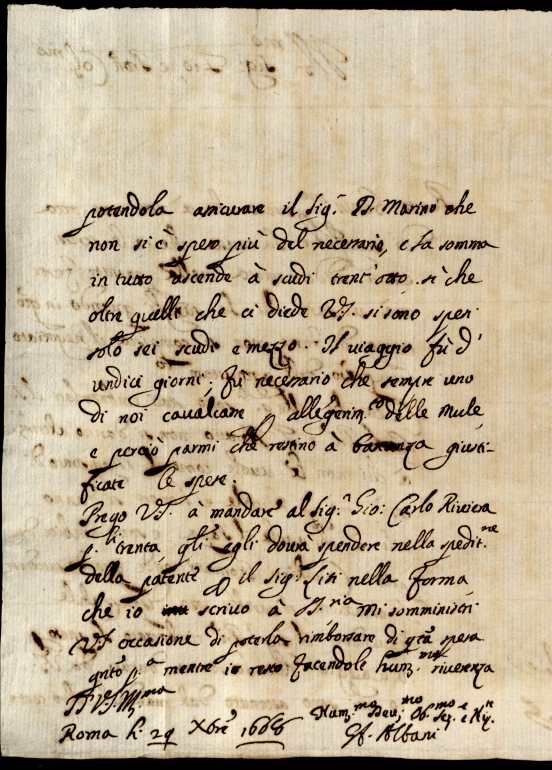 potendola assicurare il Sig.r D. Marino che
non si è speso più del necessario, e la somma
in tutto ascende à scudi trent'otto. si che
oltre quelli che ci diede V.S. si sono spesi
solo sei scudi e mezzo. Il viaggio fù d'
undici giorni; fù necessario che sempre uno
di noi cavalcasse p allegerim.to delle Mule
e perciò parmi che restino à bastanza giusti-
ficate le spese.
Prego V.S. à mandare al Sig.r Gio: Carlo Riviera
trenta, egli dovrà spendere nella spedit.ne
della patente p il Sig.r nella forma
che io scrivo à Mi somministri
V.S. occasione di poterla rimborsare di q.ta spesa
q.nto p.a mentre io resto facendole hum.ma riverenza
Di V.S. Ill.ma
Roma li 29 Xbre 1668
Hum.mo Dev.mo Ob.mo Ser.e e
Albani